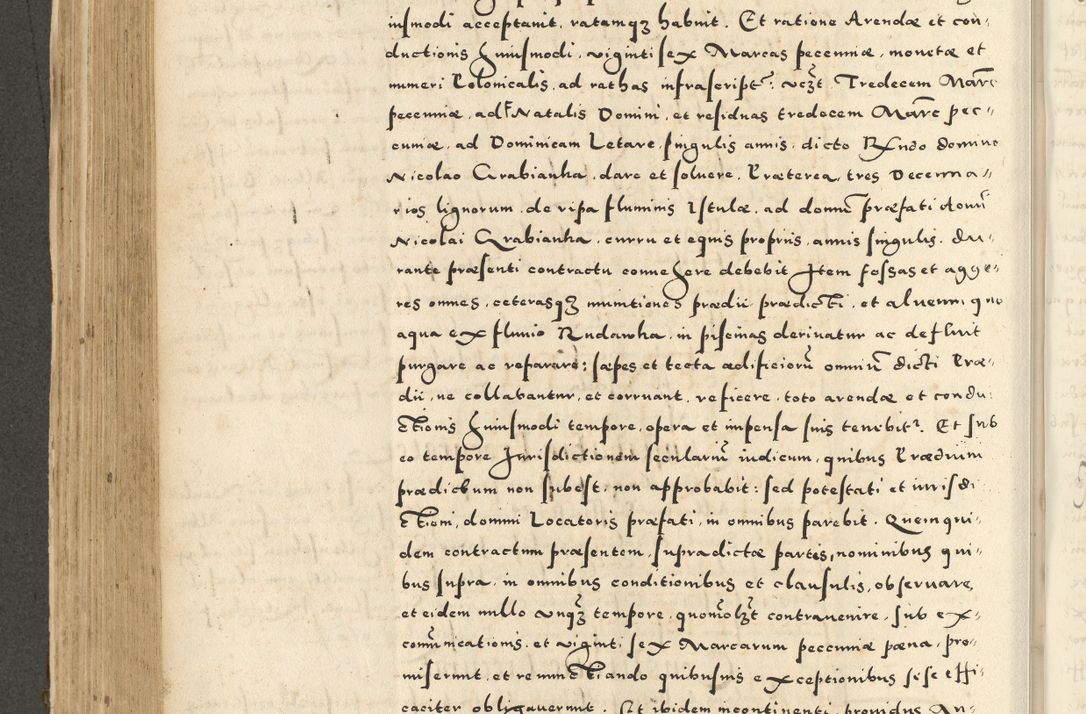 iusmodi acceptauit, ratamq₃ habuit. Et ratione Arendæ et con-
ductionis huiusmodi, viginti sex Marcas pecuniæ, monetæ et
numeri Polonicalis, ad rathas infrascript: vcz̃t Tredecem Marc̃
pecuniæ, ad Natalis Domini, et residuas tredecem Marc̃ pec-
cuniæ, ad Dominicam Letare, singulis annis, dicto Rñdo domino
Nicolao Crabianka, dare et soluere. Præterea, tres Decenna-
rios lignorum, de ripa fluminis Istulæ, ad domũ præfati domi
Nicolai Crabianka, curru et equis propriis, annis singulis, du-
rante præsenti contractu conuehere debebit Item fossas et agge-
res omnes, ceterasq₃ munitiones prædii prædicti, et alueum, quo
aqua ex fluuio Rudawka, in piscinas deriuatur ac defluit
purgare ac reparare: sæpes et tecta ædificiorũ omniũ dicti Præ-
dii, ne collabantur, et corruant, reficere, toto arendæ et condu-
ctionis huiusmodi tempore, opera et impensa suis tenebit2. Et sub
eo tempore Jurisdictionem seculariũ iudicum, quibus Prædium
prædictum non subest, non approbabit: sed potestati et iurisdi
ctioni, domini Locatoris præfati, in omnibus parebit. Quem qui-
dem contractum præsentem, supradictæ partes, nominibus qui-
bus supra, in omnibus conditionibus et clausulis, obseruare,
et eidem nullo vnq₃ tempore, quomolz̃t contrauenire, sub ex-
comũnicationis, et viginti sex Marcarum pecuniæ pæna, pro-
miserunt, et renunctiando quibusuis exceptionibus sese effi-
caciter obligauerunt. Et ibidem incontinenti, prouidus An-